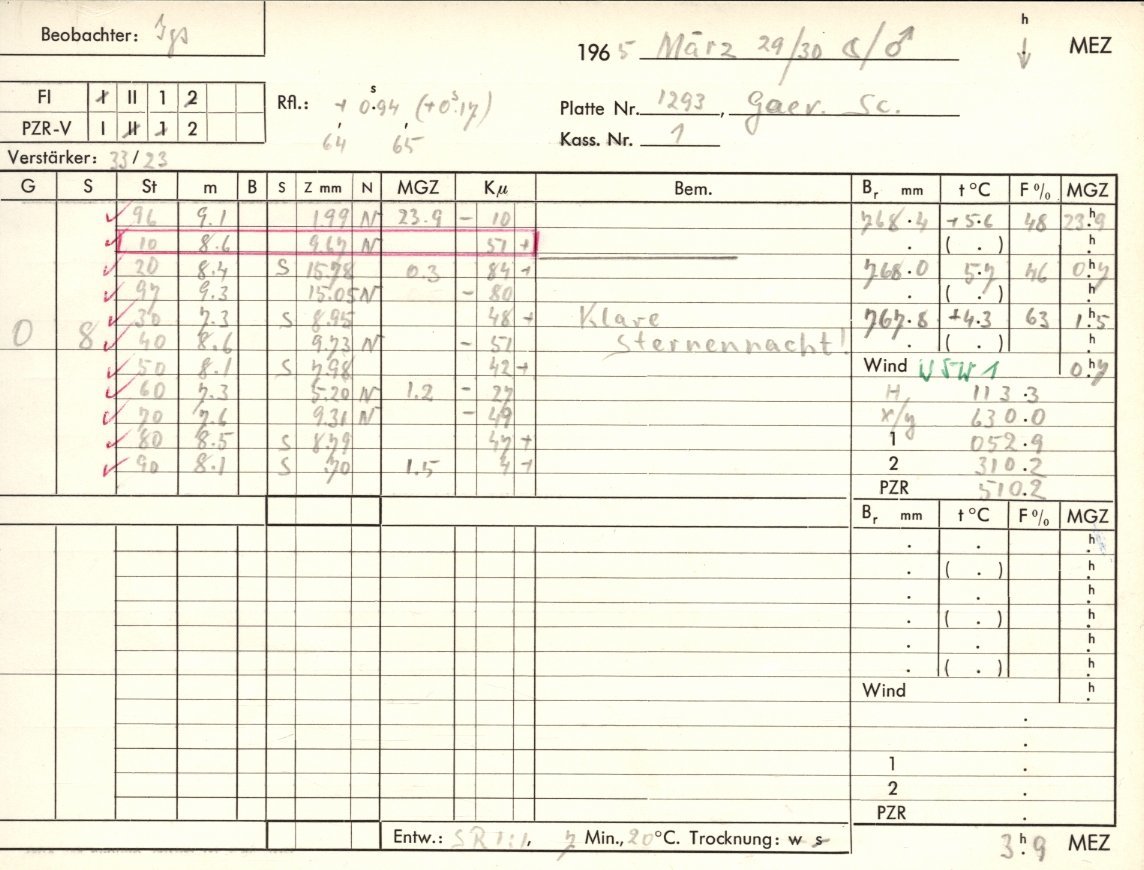 Beobachter: Jgs
1965 März 29/30 ☾/♂ h ↓ MEZ
FI I II 1 2
PZR-V I II 1 2
Rfl.: + 0.94 (+0.17) s s
64 65
Platte Nr. 1293, Gaev. Sc.
Kass. Nr. 1
Verstärker: 33/23
G S St m B S Z mm N MGZ Kμ Bem. Br mm t °C F % MGZ
✓ 96 9.1 1.99 N 23.9 - 10 768.4 +5.6 48 23.9 h
✓ 10 8.6 9.67 N 51 + . ( . ) h
✓ 20 8.4 S 15.78 0.3 84 + 768.0 5.7 46 0.7 h
✓ 97 9.3 15.05 N - 80 . ( . ) h
0 8 ✓ 30 7.3 S 8.95 48 + Klare 767.8 +4.3 63 1.5 h
✓ 40 8.6 9.73 N - 51 Sternennacht! . ( . ) h
✓ 50 8.1 S 7.98 42 + Wind WSW 1 0.7 h
✓ 60 7.3 5.20 N 1.2 - 27 H 113.3
✓ 70 7.6 9.31 N - 49 x/y 630.0
✓ 80 8.5 S 8.79 47 + 1 052.9
✓ 90 8.1 S .70 1.5 4 + 2 310.2
PZR 510.2
Br mm t °C F % MGZ
. . h
. ( . ) h
. . h
. ( . ) h
. . h
. ( . ) h
Wind h
.
.
1 .
2 .
PZR .
Entw.: SR 1:1, 7 Min., 20 °C. Trocknung: w s
3.9 h MEZ